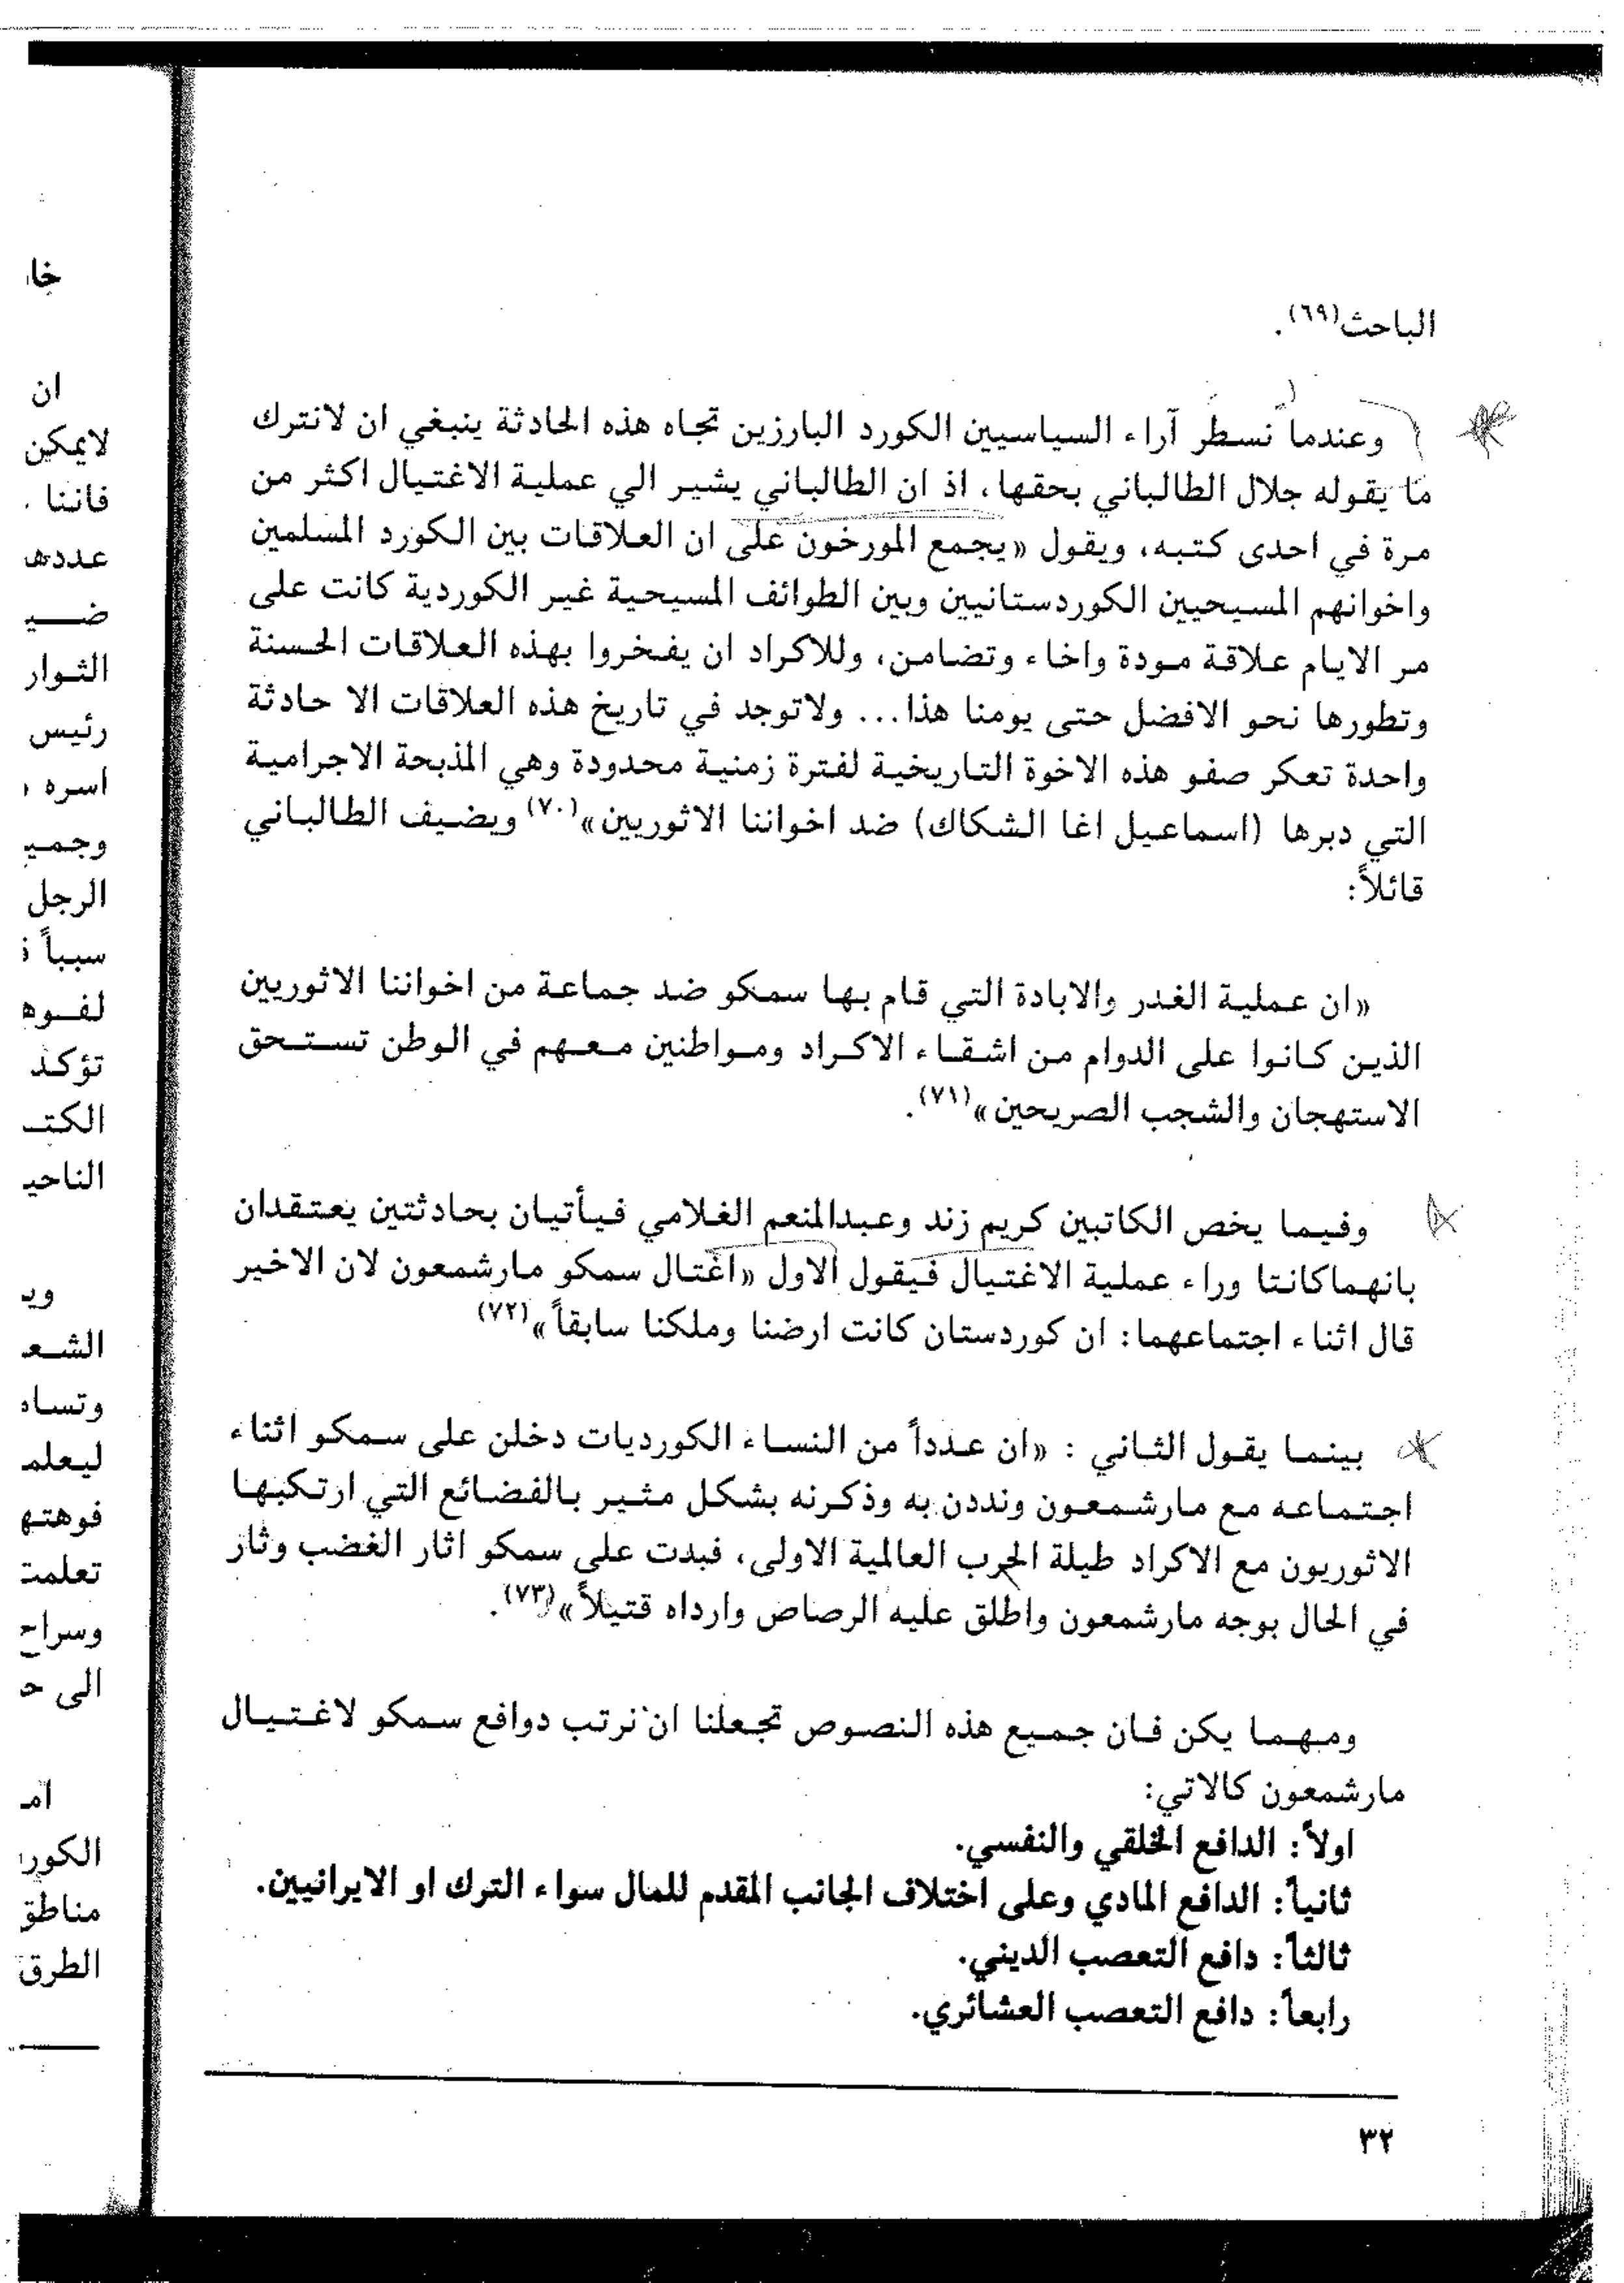 الباحث(٦٩).
وعندما نسطر آراء السياسيين الكورد البارزين تجاه هذه الحادثة ينبغي ان لانترك
ما يقوله جلال الطالباني بحقها، اذ ان الطالباني يشير الي عملية الاغتيال اكثر من
مرة في احدى كتبه، ويقول «يجمع المورخون على ان العلاقات بين الكورد المسلمين
واخوانهم المسيحيين الكوردستانيين وبين الطوائف المسيحية غير الكوردية كانت على
مر الايام علاقة مودة واخاء وتضامن، وللاكراد ان يفخروا بهذه العلاقات الحسنة
وتطورها نحو الافضل حتى يومنا هذا... ولاتوجد في تاريخ هذه العلاقات الا حادثة
واحدة تعكر صفو هذه الاخوة التاريخية لفترة زمنية محدودة وهي المذبحة الاجرامية
التي دبرها (اسماعيل اغا الشكاك) ضد اخواننا الاثوريين»(٧٠) ويضيف الطالباني
قائلاً:
«ان عملية الغدر والابادة التي قام بها سمكو ضد جماعة من اخواننا الاثوريين
الذين كانوا على الدوام من اشقاء الاكراد ومواطنين معهم في الوطن تستحق
الاستهجان والشجب الصريحين»(٧١).
وفيما يخص الكاتبين كريم زند وعبدالمنعم الغلامي فيأتيان بحادثتين يعتقدان
بانهماكانتا وراء عملية الاغتيال فيقول الاول «اغتال سمكو مارشمعون لان الاخير
قال اثناء اجتماعهما: ان كوردستان كانت ارضنا وملكنا سابقاً»(٧٢)
بينما يقول الثاني : «ان عدداً من النساء الكورديات دخلن على سمكو اثناء
اجتماعه مع مارشمعون ونددن به وذكرنه بشكل مثير بالفضائع التي ارتكبها
الاثوريون مع الاكراد طيلة الحرب العالمية الاولى، فبدت على سمكو اثار الغضب وثار
في الحال بوجه مارشمعون واطلق عليه الرصاص وارداه قتيلاً»(٧٣).
ومهما يكن فان جميع هذه النصوص تجعلنا ان نرتب دوافع سمكو لاغتيال
مارشمعون كالاتي:
اولاً: الدافع الخلقي والنفسي.
ثانياً: الدافع المادي وعلى اختلاف الجانب المقدم للمال سواء الترك او الايرانيين.
ثالثاً: دافع التعصب الديني.
رابعاً: دافع التعصب العشائري.
٣٢
ان
لايمكن
فاننا
الثوار
رئيس
اسره
الرجل
سبباً
تؤكد
الى
مناطق
الطرق